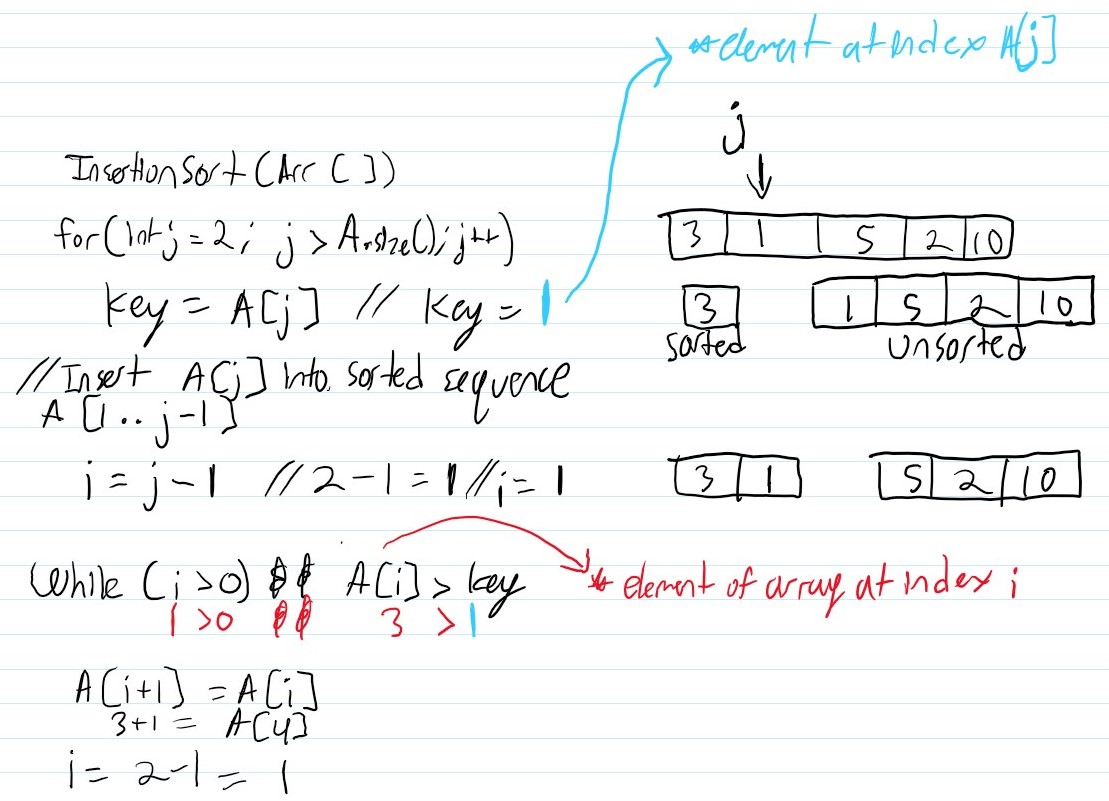 * element at index A[j]
j
InsertionSort(Arr[])
for(int j = 2; j > A.size(); j++)
3 1 5 2 10
key = A[j] // key = 1
3 1 5 2 10
sorted unsorted
//Insert A[j] into sorted sequence
A[1..j-1]
i = j-1 //2-1 = 1//i = 1
3 1 5 2 10
While (i >0) && A[i] > key * element of array at index i
1 >0 && 3 > 1
A[i+1] = A[i]
3+1 = A[4]
i = 2-1 = 1